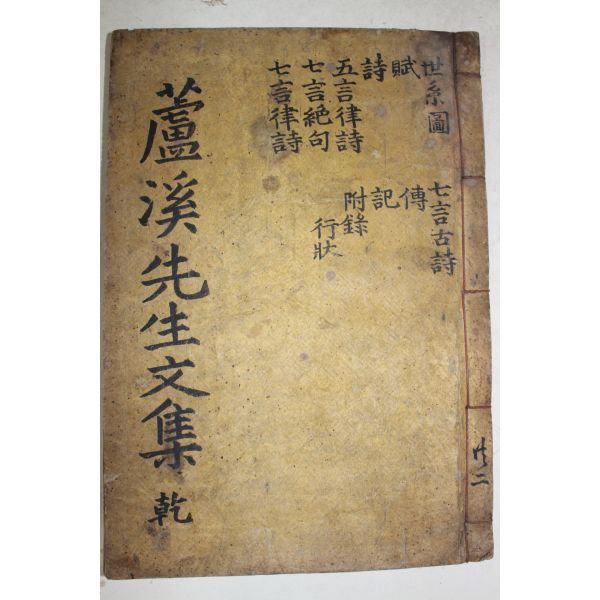 蘆溪先生文集 乾
世系圖
賦
詩
五言律詩
七言絕句
七言律詩
七言古詩
傳
記
附錄
行狀
共二